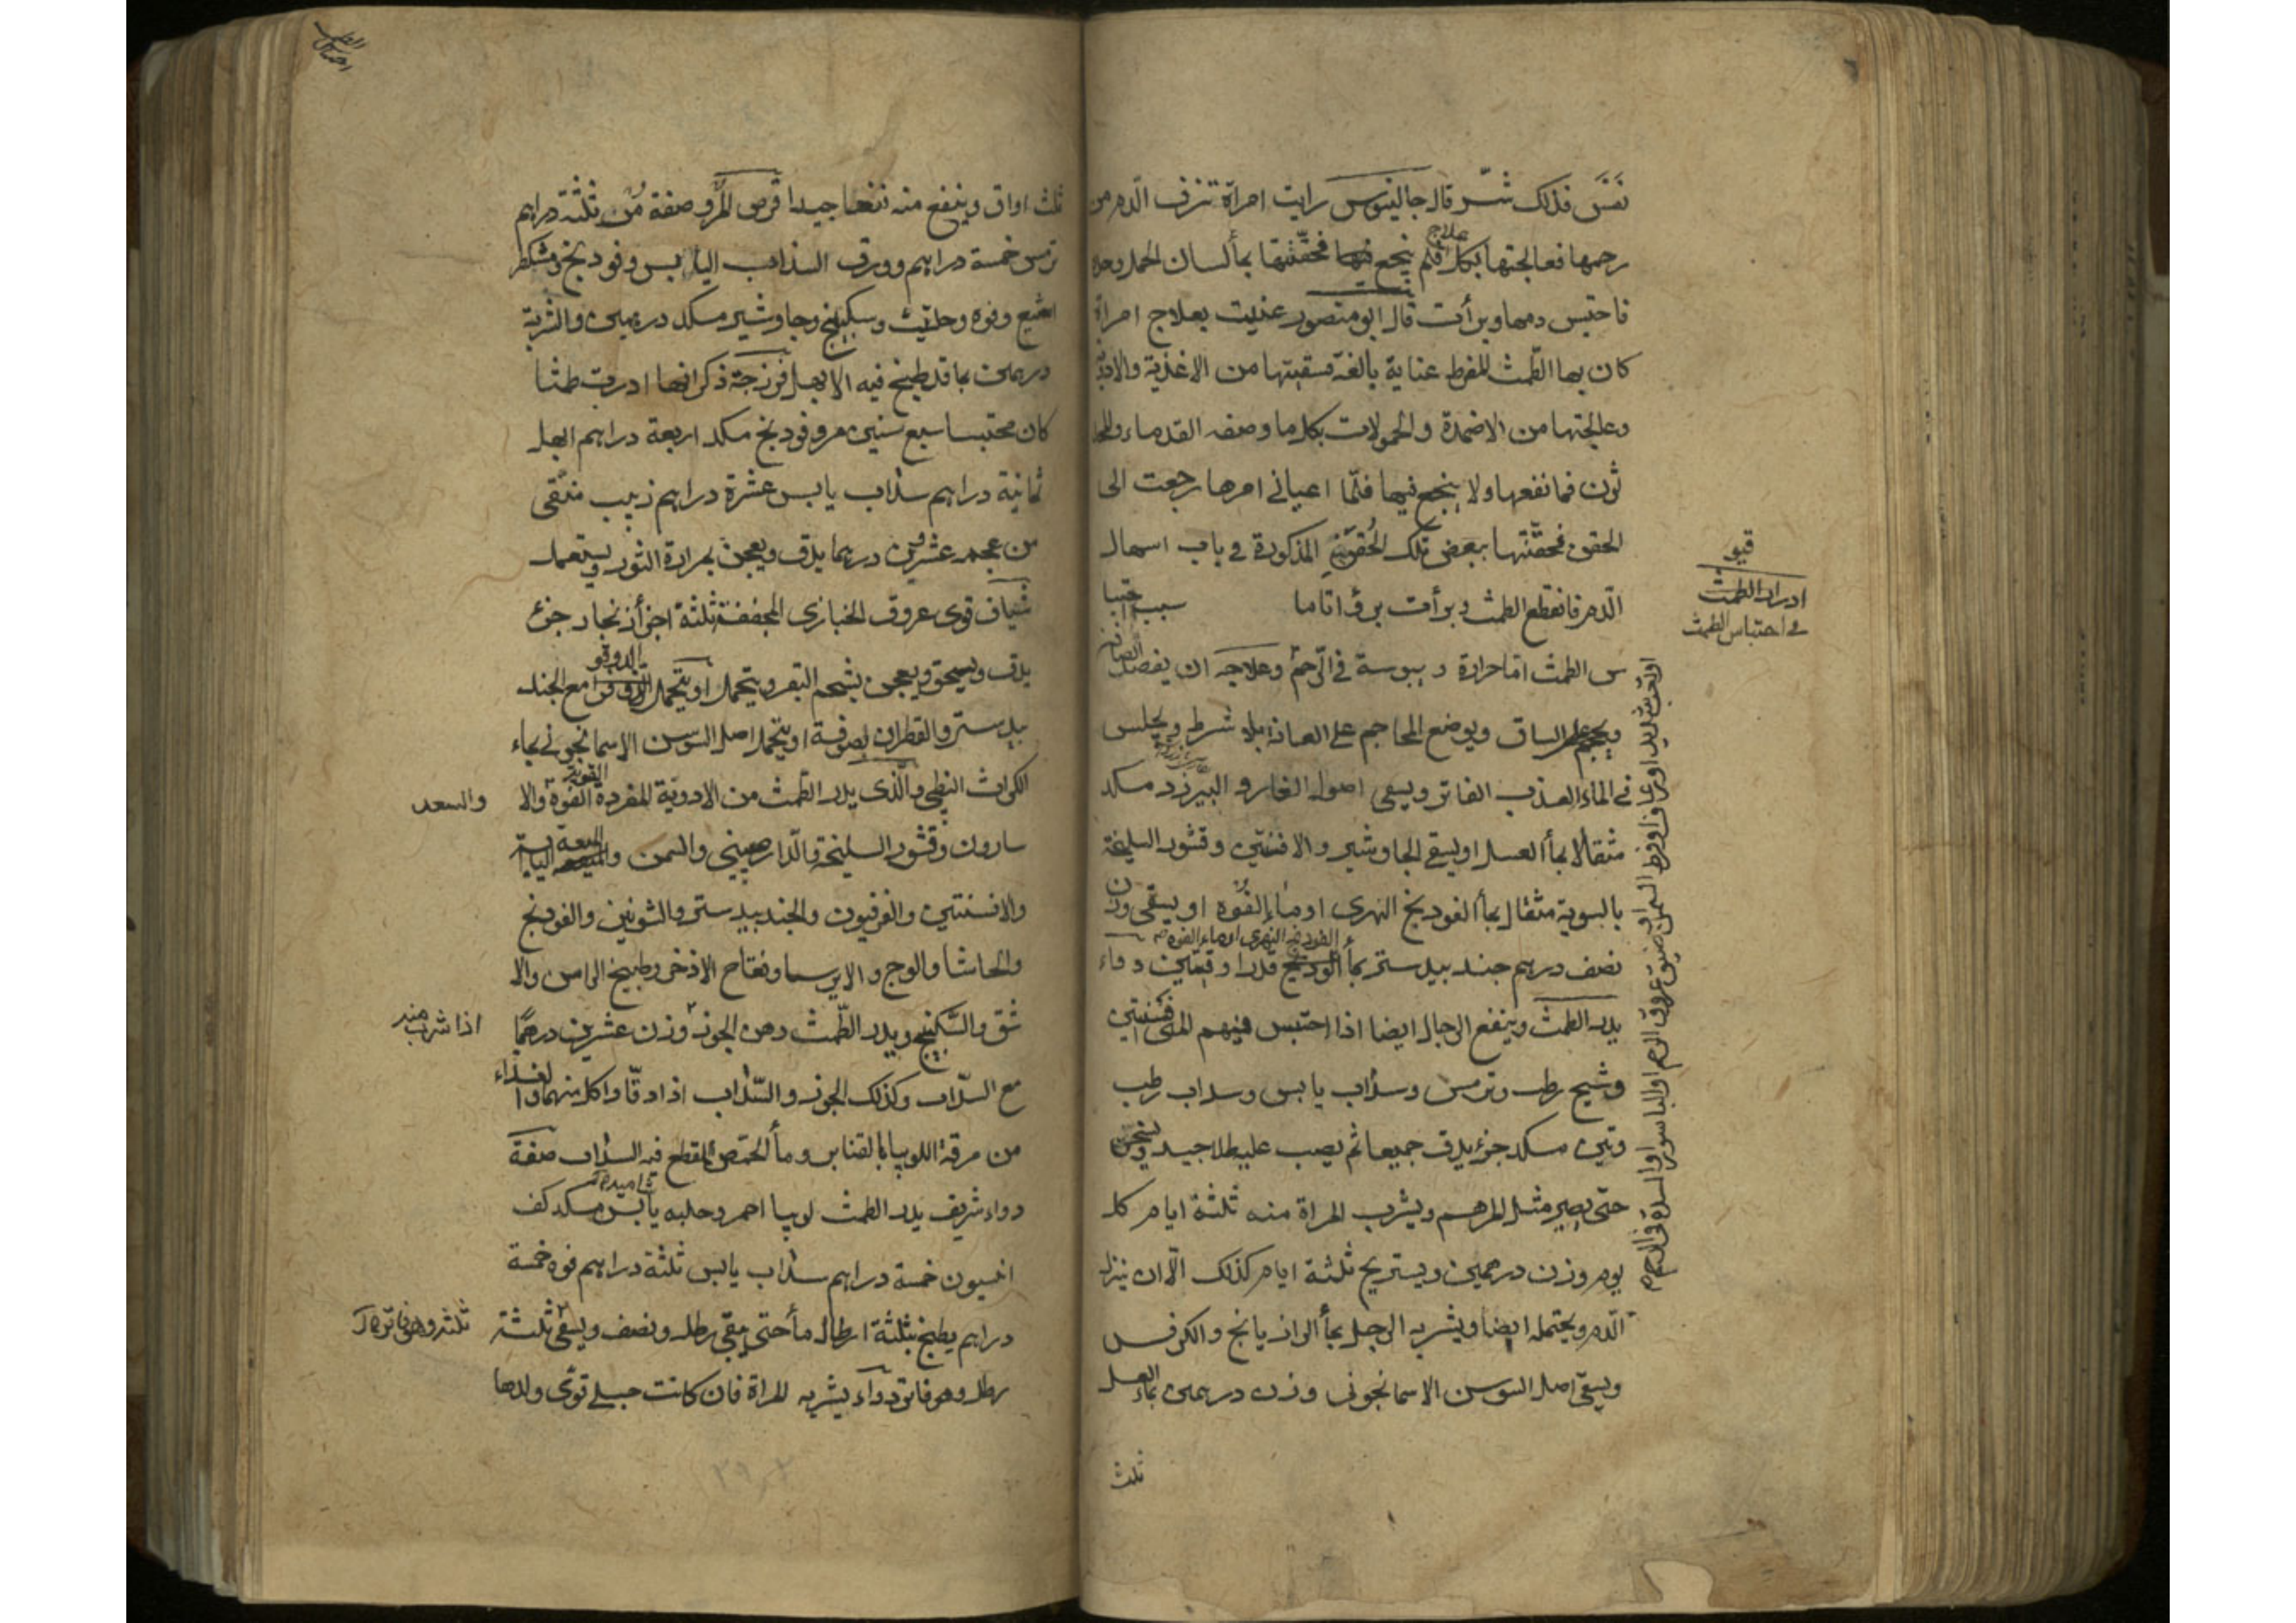 نفس فذلك شر قال جالينوس رايت امراة تنزف الدم من
رحمها فعالجتها بكل علاج فلم ينجع فيها فحقنتها بماء لسان الحمل وحده
فاحتبس دمها وبرأت قال ابو منصور عنيت بعلاج امراة
كان بها الطمث المفرط عناية بالغة فسقيتها من الاغذية والادوية
وعالجتها من الاضمدة والحمولات بكل ما وصفه القدماء والمحد
ثون فما نفعها ولا ينجع فيها فلما اعياني امرها رجعت الى
الحقن فحقنتها ببعض تلك الحقن المذكورة في باب اسهال
الدم فانقطع الطمث وبرأت برؤا تاما سبب احتبا
س الطمث اما حرارة ويبوسة في الرحم وعلاجه ان يفصد الصافن
ويحجم على الساق ويوضع المحاجم على العانة بلا شرط ويجلس
في الماء العذب الفاتر ويسقى اصول الغار والبيرزد مكد
مثقالا بماء العسل او يسقى الجاوشير والافسنتين وقشور السليخة
بالسوية مثقال بماء الفودنج النهري او ماء الفوه او يسقى وزن
نصف درهم جندبيدستر بماء الفودنج النهري او ماء الفوه قدر اوقيتين دواء
يدر الطمث وينفع الرجال ايضا اذا احتبس فيهم المنى افسنتين
وشيح رطب وترمس وسذاب يابس وسداب رطب
وتين مسكد جزء يدق جميعا ثم يصب عليه طلا جيد ويسخن
حتى يصير مثل المرهم ويشرب المراة منه ثلثة ايام كل
يوم وزن درهمين ويستريح ثلثة ايام كذلك الا ان ينزل
الدم ويحتمله ايضا ويشربه الرجل بماء الرازيانج والكرفس
ويسقى اصل السوسن الاسمانجوني وزن درهمين بماء العسل
ثلث
ادرار الطمث
في احتباس الطمث
ثلث اواق وينفع منه نفعا جيدا قرص المر وصفة مر ثلثة دراهم
ترمس خمسة دراهم وورق السذاب اليابس وفودنج ومشكطر
امشيع وفوه وحلتيت وسكبينج وجاوشير مسكد درهمين والشربة
درهمين بماء قد طبخ فيه الابهل فرزجة ذكر انها ادرت طمثا
كان محتبسا سبع سنين مر وفودنج مكد اربعة دراهم ابهل
ثمانية دراهم سذاب يابس عشرة دراهم زبيب منقى
من عجمه عشرين درهما يدق ويعجن بمرارة الثور ويستعمل
شياف قوى عروق الخبازى المجففة ثلثة اجزأ زنجار جزء
يدق ويسحق ويعجن بشحم البقر ويتحمل او يتحمل الدوقو مع الجند
بيدستر والقطران بصوفة او يتحمل اصل السوسن الاسمانجوني بماء
الكراث النبطي والذى يدر الطمث من الادوية المفردة الفوة والا
والسعد
سارون وقشور السليخة والدارصيني والسمن والميعة اليابسة
والافسنتين والفرفيون والجندبيدستر والشونيز والفودنج
والحاشا والوج والايرسا وفقاح الاذخر وطبيخ الراسن والا
شق والسكبينج ويدر الطمث دهن الجوز وزن عشرين درهما
اذا شرب منه
مع السذاب وكذلك الجوز والسذاب اذا دقا واكل منهما والغذاء
من مرقة اللوبيا بالقنابر وماء الحمص المقطع فيه السذاب صفة
دواء شريف يدر الطمث لوبيا احمر وحلبه يابس مسكد كف
انيسون خمسة دراهم سذاب يابس ثلثة دراهم فوه خمسة
دراهم يطبخ بثلثة ارطال ماء حتى يبقى رطل ونصف ويسقى ثلثة
رطل وهو فاتر دواء يشربه المراة فان كانت حبلى قوى ولدها